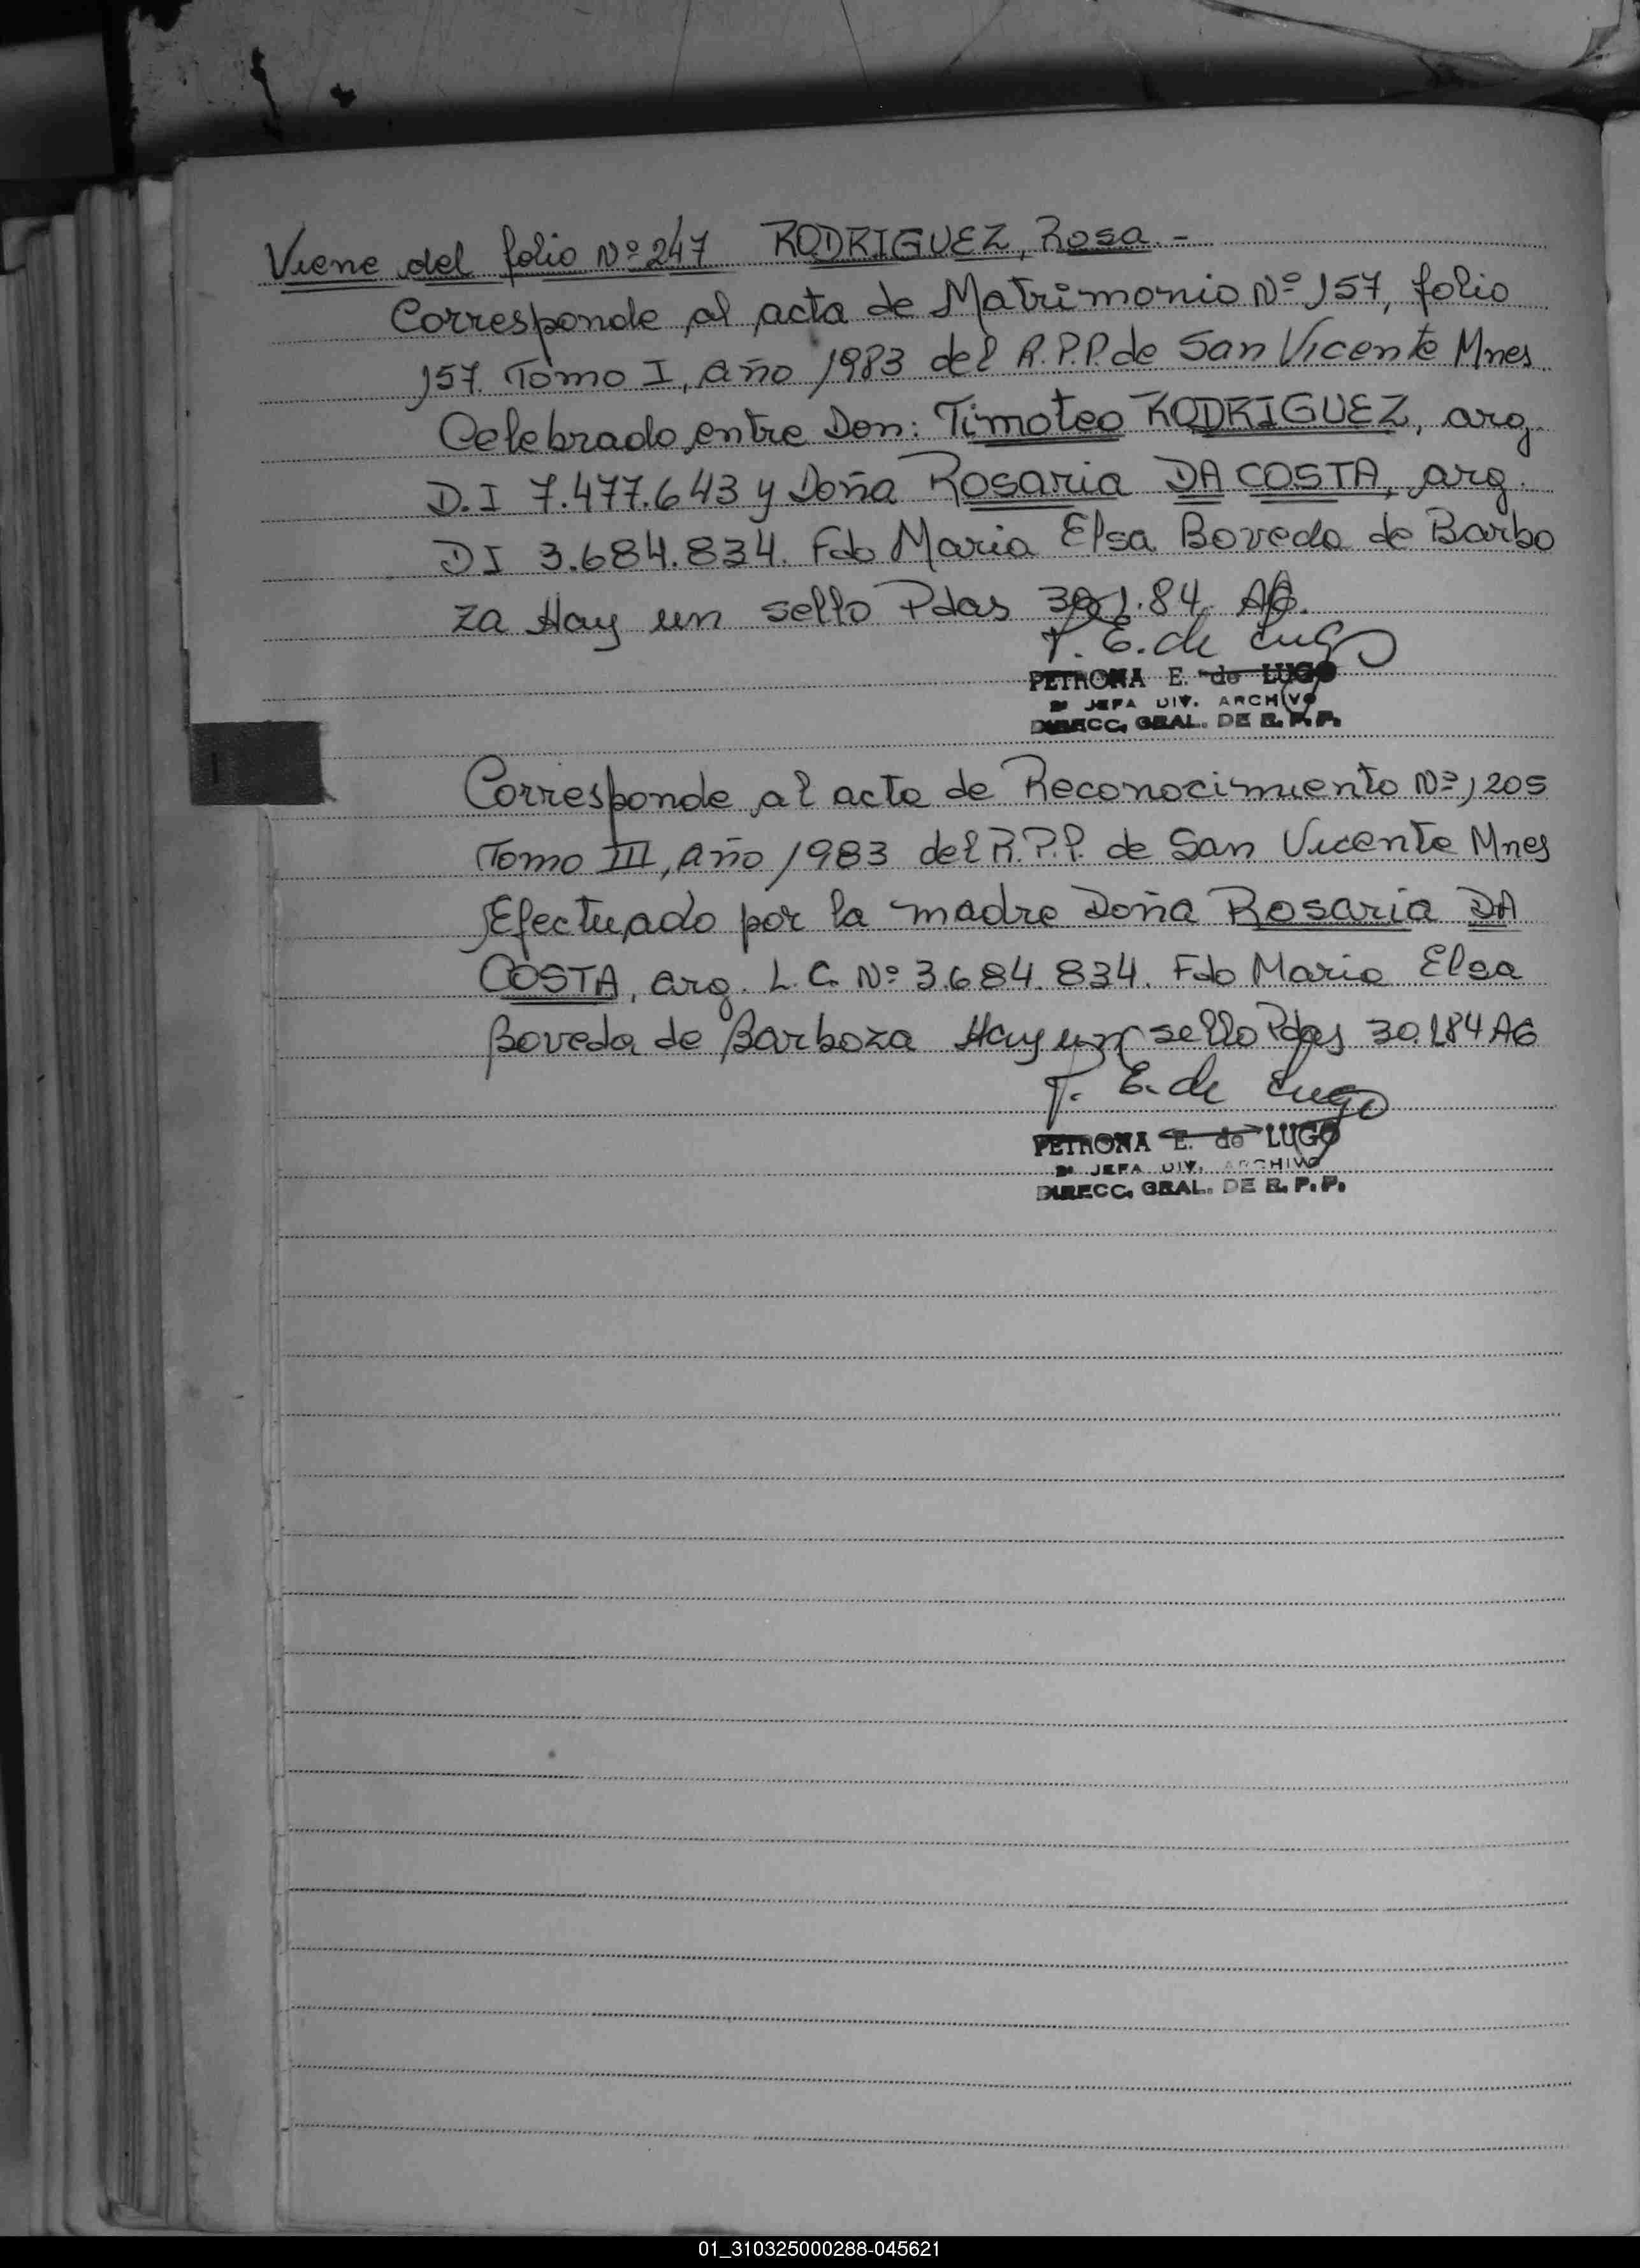 Viene del folio Nº 247 RODRIGUEZ, Rosa.-
Corresponde al acta de Matrimonio Nº 157, folio
157 Tomo I, año 1983 del R.P.P. de San Vicente Mnes
Celebrado entre Don: Timoteo RODRIGUEZ, arg.
D.I 7.477.643 y Doña Rosaria DA COSTA, arg.
DI 3.684.834. Fdo Maria Elsa Boveda de Barbo
za Hay un sello Pdas 30.1.84 AG.
P. E. de Lugo
PETRONA E. de LUGO
JEFA DIV. ARCHIVO
DIRECC. GRAL. DE R.P.P.
Corresponde al acta de Reconocimiento Nº 1205
Tomo III, año 1983 del R.P.P. de San Vicente Mnes
Efectuado por la madre Doña Rosaria DA
COSTA, arg. L.C. Nº 3.684.834. Fdo Maria Elsa
Boveda de Barboza Hay un sello Pdas 30.1.84 AG
P. E. de Lugo
PETRONA E. de LUGO
JEFA DIV. ARCHIVO
DIRECC. GRAL. DE R.P.P.
01_310325000288-045621